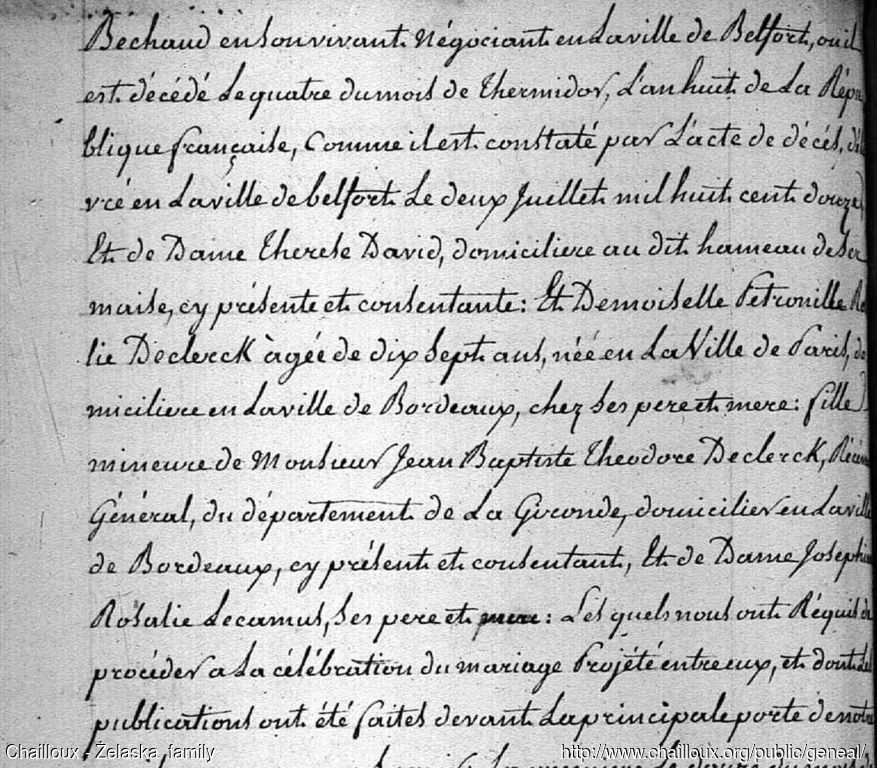 Bechaud en son vivant Négociant en La ville de Belfort, ou il
est décédé Le quatre du mois de Thermidor, L'an huit de La Répu
blique française, Comme il est constaté par L'acte de décés, déli
vré en La ville de belfort Le deux Juillet mil huit cent douze,
Et de Dame Therese David, domiciliere au dit hameau de Ser
maise, cy présente et consentante : Et Demoiselle Petronille Ro
lie Declerck àgée de dix sept ans, née en La Ville de Paris, do
miciliere en La ville de Bordeaux, chez ses pere et mere : fille
mineure de Monsieur Jean Baptiste Theodore Declerck,
Général, du département de La Gironde, domicilier en La ville
de Bordeaux, cy présent et consentant, Et de Dame Josephine
Rosalie Lecamus, ses pere et mere : Les quels nous ont Réquis de
procéder a La célébration du mariage Projété entre eux, et dont Les
publications ont été faites devant La principale porte de notre
Chailloux - Żelaska family
http://www.chailloux.org/public/geneal/